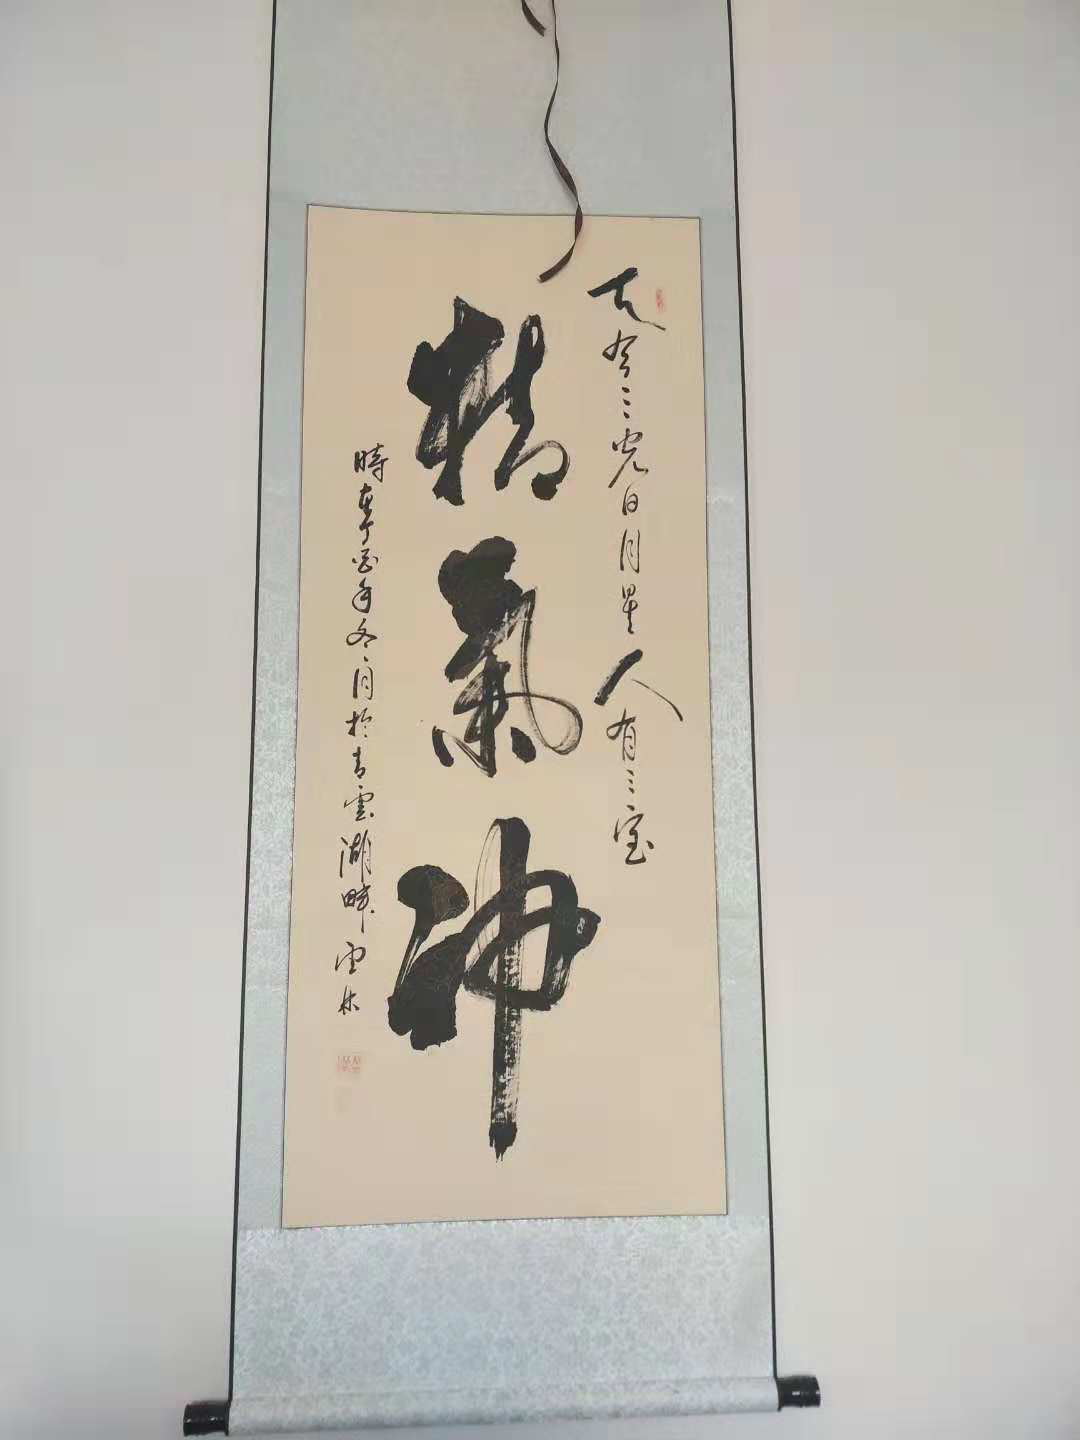 天有三光日月星人有三宝
精氣神
時在丁酉年冬月於青雲湖畔雲林